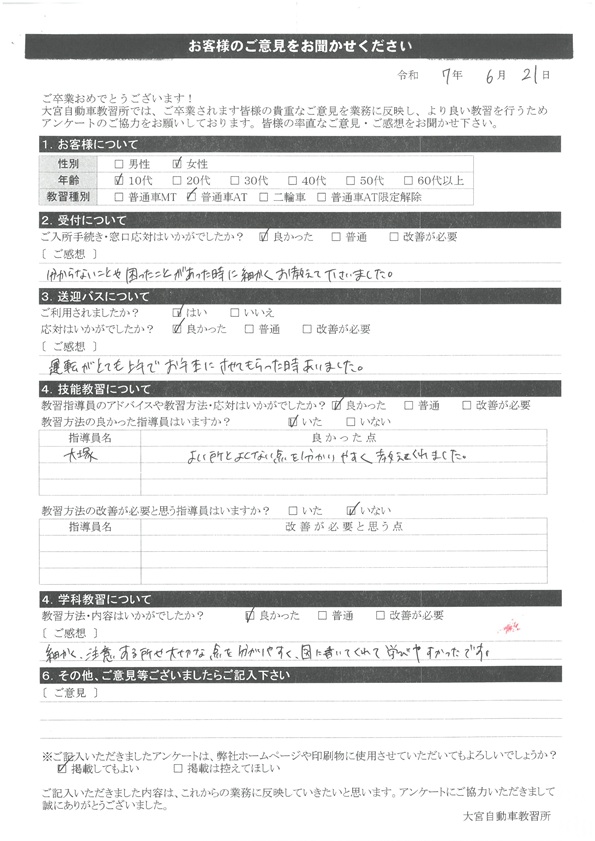 お客様のご意見をお聞かせください
令和 7年 6月 21日
ご卒業おめでとうございます！
大宮自動車教習所では、ご卒業されます皆様の貴重なご意見を業務に反映し、より良い教習を行うため
アンケートのご協力をお願いしております。皆様の率直なご意見・ご感想をお聞かせ下さい。
1. お客様について
性別 □ 男性 ☑ 女性
年齢 ☑ 10代 □ 20代 □ 30代 □ 40代 □ 50代 □ 60代以上
教習種別 □ 普通車MT ☑ 普通車AT □ 二輪車 □ 普通車AT限定解除
2. 受付について
ご入所手続き・窓口応対はいかがでしたか？ ☑ 良かった □ 普通 □ 改善が必要
［ ご感想 ］
分からないことや困ったことがあった時に細かくお教えて下さいました。
3. 送迎バスについて
ご利用されましたか？ ☑ はい □ いいえ
応対はいかがでしたか？ ☑ 良かった □ 普通 □ 改善が必要
［ ご感想 ］
運転がとても上手でお手本にさせてもらった時ありました。
4. 技能教習について
教習指導員のアドバイスや教習方法・応対はいかがでしたか？ ☑ 良かった □ 普通 □ 改善が必要
教習方法の良かった指導員はいますか？ ☑ いた □ いない
指導員名 良かった点
大塚 よい所とよくない点を分かりやすく教えてくれました。
教習方法の改善が必要と思う指導員はいますか？ □ いた ☑ いない
指導員名 改善が必要と思う点
4. 学科教習について
教習方法・内容はいかがでしたか？ ☑ 良かった □ 普通 □ 改善が必要
［ ご感想 ］
細かく、注意する所や大切な点を分かりやすく、図に書いてくれて学びやすかったです。
6. その他、ご意見等ございましたらご記入下さい
［ ご意見 ］
※ご記入いただきましたアンケートは、弊社ホームページや印刷物に使用させていただいてもよろしいでしょうか？
☑ 掲載してもよい □ 掲載は控えてほしい
ご記入いただきました内容は、これからの業務に反映していきたいと思います。アンケートにご協力いただきまして
誠にありがとうございました。
大宮自動車教習所